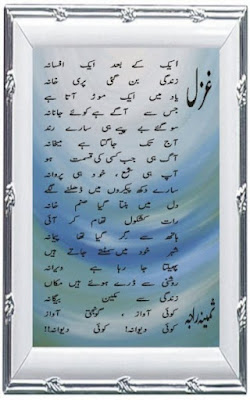 غزل
ایک کے بعد ایک افسانہ
زندگی بن گئی پری خانہ
یاد میں ایک موڑ آتا ہے
جس سے آگے ہے کوئے جانانہ
سو گئے بے پیے ہی سارے رند
آج تک جاگتا ہے میخانہ
آگ ہی جب کسی کی قسمت ہو
آپ ہی شمع، خود ہی پروانہ
سارے دکھ پیکروں میں ڈھلنے لگے
دل میں بنتا گیا صنم خانہ
رات کشکول تھام کر آئی
ہاتھ سے گر گیا تھا پیمانہ
شہر خود میں سمٹتے جاتے ہیں
پھیلتا جا رہا ہے ویرانہ
روشنی سے ڈرے ہوئے ہیں مکاں
زندگی سے مکین بیگانہ
کوئی آواز، گونجتی آواز
کوئی دیوانہ! کوئی دیوانہ!!
ثمینہ راجہ